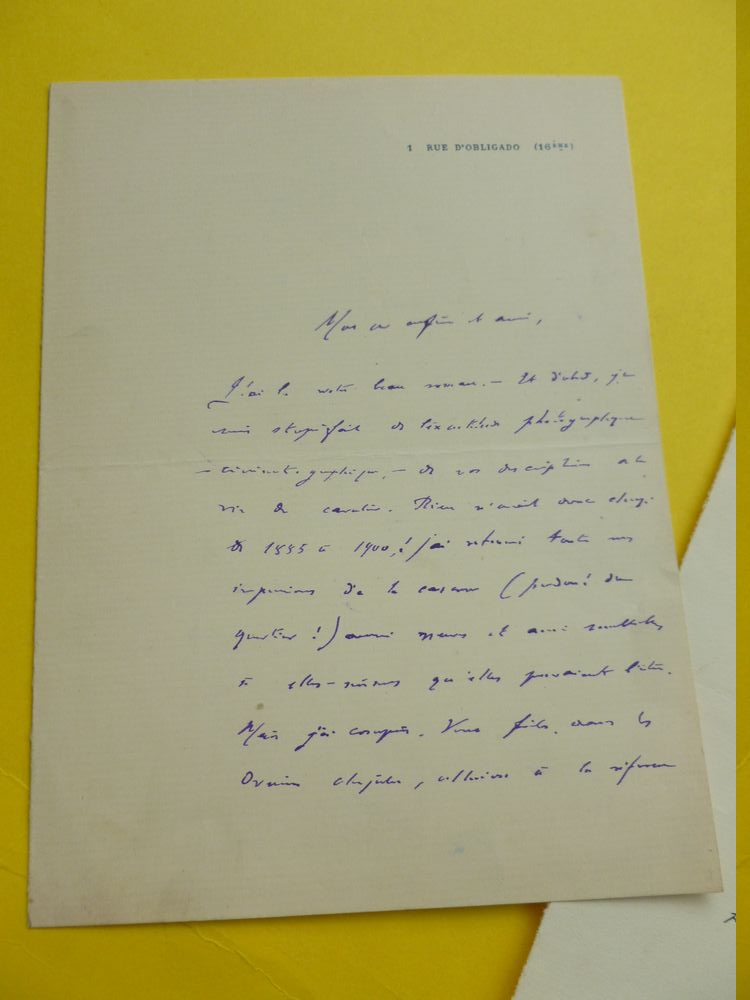 1 RUE D'OBLIGADO (16ÈME)
Mon et ami,
J'ai lu votre beau roman. — Et d'abord, je
suis stupéfait de l'exactitude photographique
— cinématographique, — de vos descriptions de la
vie de cavalier. Rien n'avait donc changé
de 1885 à 1900,! j'ai retrouvé toutes mes
impressions de la caserne (pardon! du
quartier!) aussi et aussi semblables
à elles-mêmes qu'elles pouvaient l'être.
Mais j'ai compris. Vous faites, dans les
derniers chapitres, allusion à la réforme